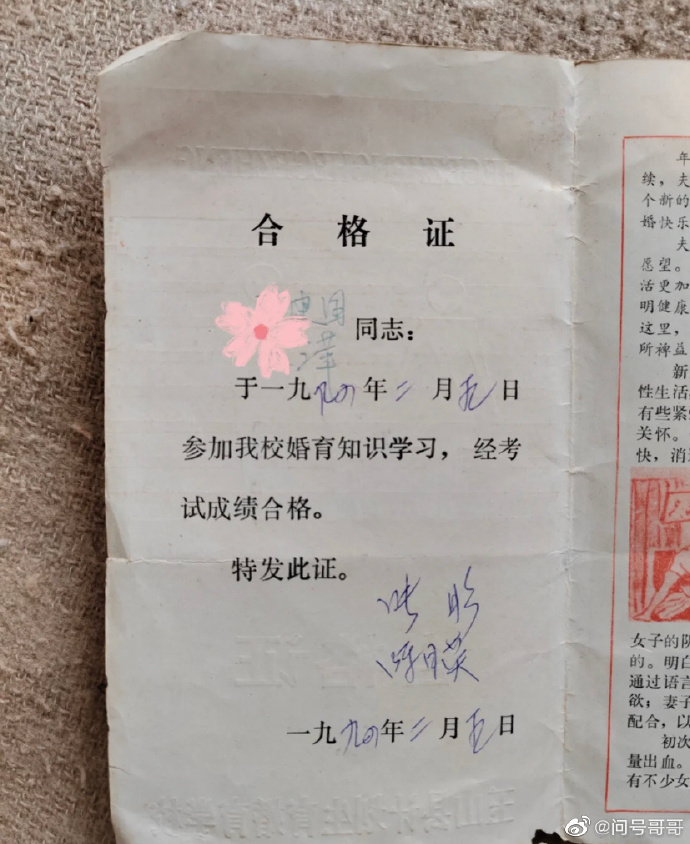 合格证
建国
萍
同志：
于一九九四年二月五日
参加我校婚育知识学习，经考
试成绩合格。
特发此证。
月英
一九九四年二月五日
年
续，夫
个新的
婚快乐
夫
愿望。
活更加
明健康
这里，
所裨益
新
性生活
有些紧
关怀。
快，消
女子的阴
的。明白
通过语言
欲；妻子
配合，以
初次
量出血。
有不少女
@问号哥哥